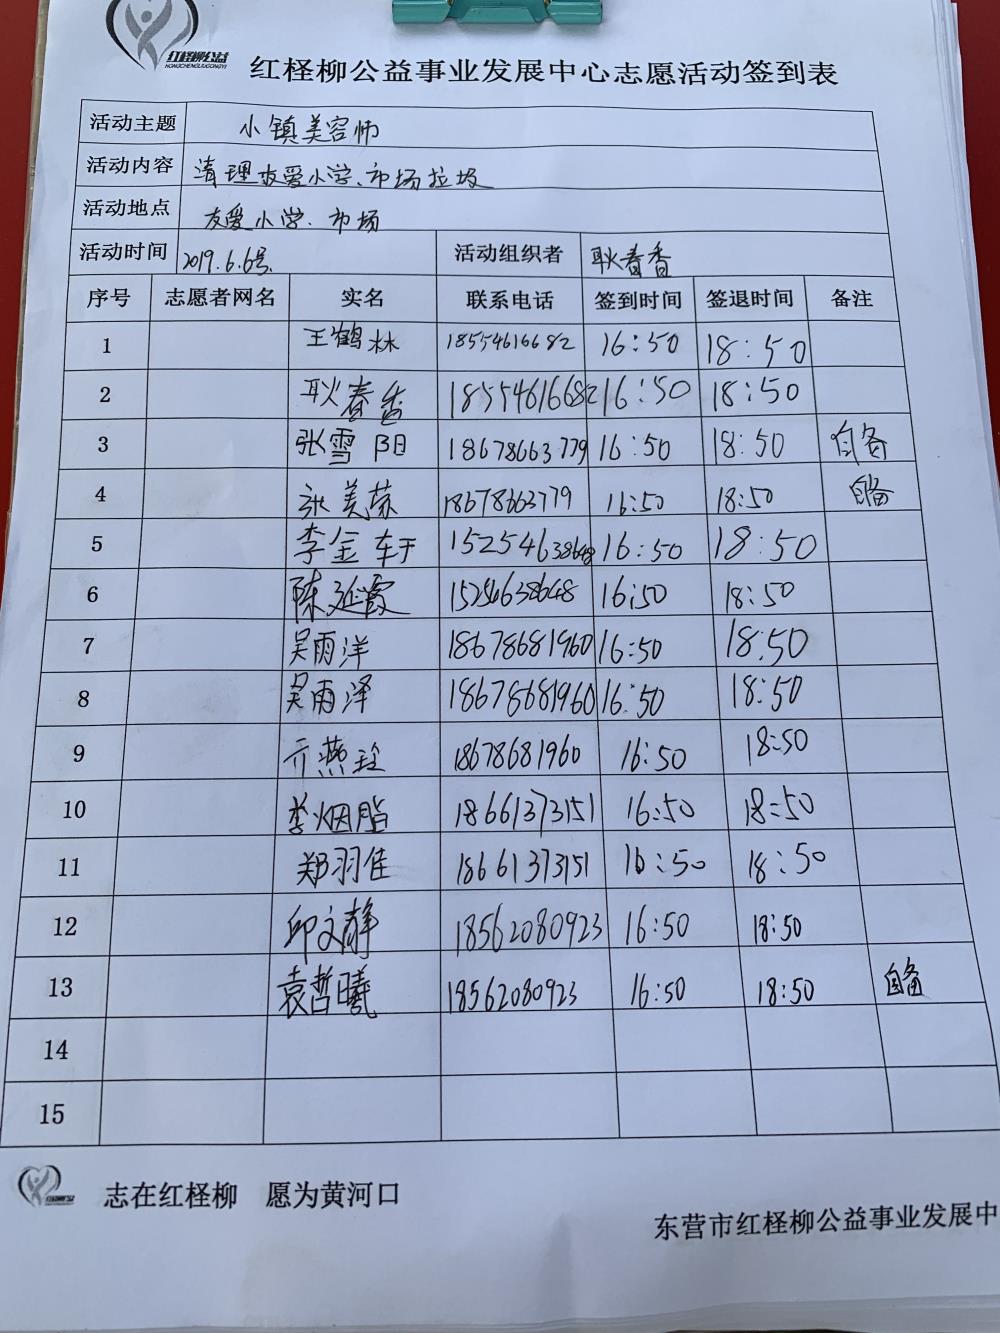 红柽柳公益
HONGCHENGLIUGONGYI
红柽柳公益事业发展中心志愿活动签到表
活动主题 小镇美容师
活动内容 清理友爱小学、市场垃圾
活动地点 友爱小学、市场
活动时间 2019.6.6号 活动组织者 耿春香
序号 志愿者网名 实名 联系电话 签到时间 签退时间 备注
1 王鹤林 18554616682 16:50 18:50
2 耿春香 18554616682 16:50 18:50
3 张雪阳 18678663779 16:50 18:50 自备
4 张美荣 18678663779 16:50 18:50 自备
5 李金轩 15254638648 16:50 18:50
6 陈延霞 15254638648 16:50 18:50
7 吴雨洋 18678681960 16:50 18:50
8 吴雨泽 18678681960 16:50 18:50
9 亓燕玲 18678681960 16:50 18:50
10 李烟脂 18661373151 16:50 18:50
11 郑羽佳 18661373151 16:50 18:50
12 邱文静 18562080923 16:50 18:50
13 袁哲曦 18562080923 16:50 18:50 自备
14
15
志在红柽柳 愿为黄河口
东营市红柽柳公益事业发展中